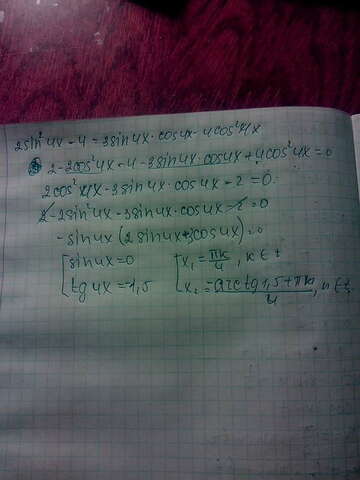 2sin²4x - 4 = 3sin4x·cos4x - 4cos²4x
2 - 2cos²4x - 4 - 3sin4x·cos4x + 4cos²4x = 0
2cos²4x - 3sin4x·cos4x - 2 = 0
2 - 2sin²4x - 3sin4x·cos4x - 2 = 0
- sin4x (2sin4x + 3cos4x) = 0
[sin4x = 0 [x₁ = πk/4, k ∈ z
[tg4x = -1,5 [x₂ = -arctg1,5 + πk/4, k ∈ z